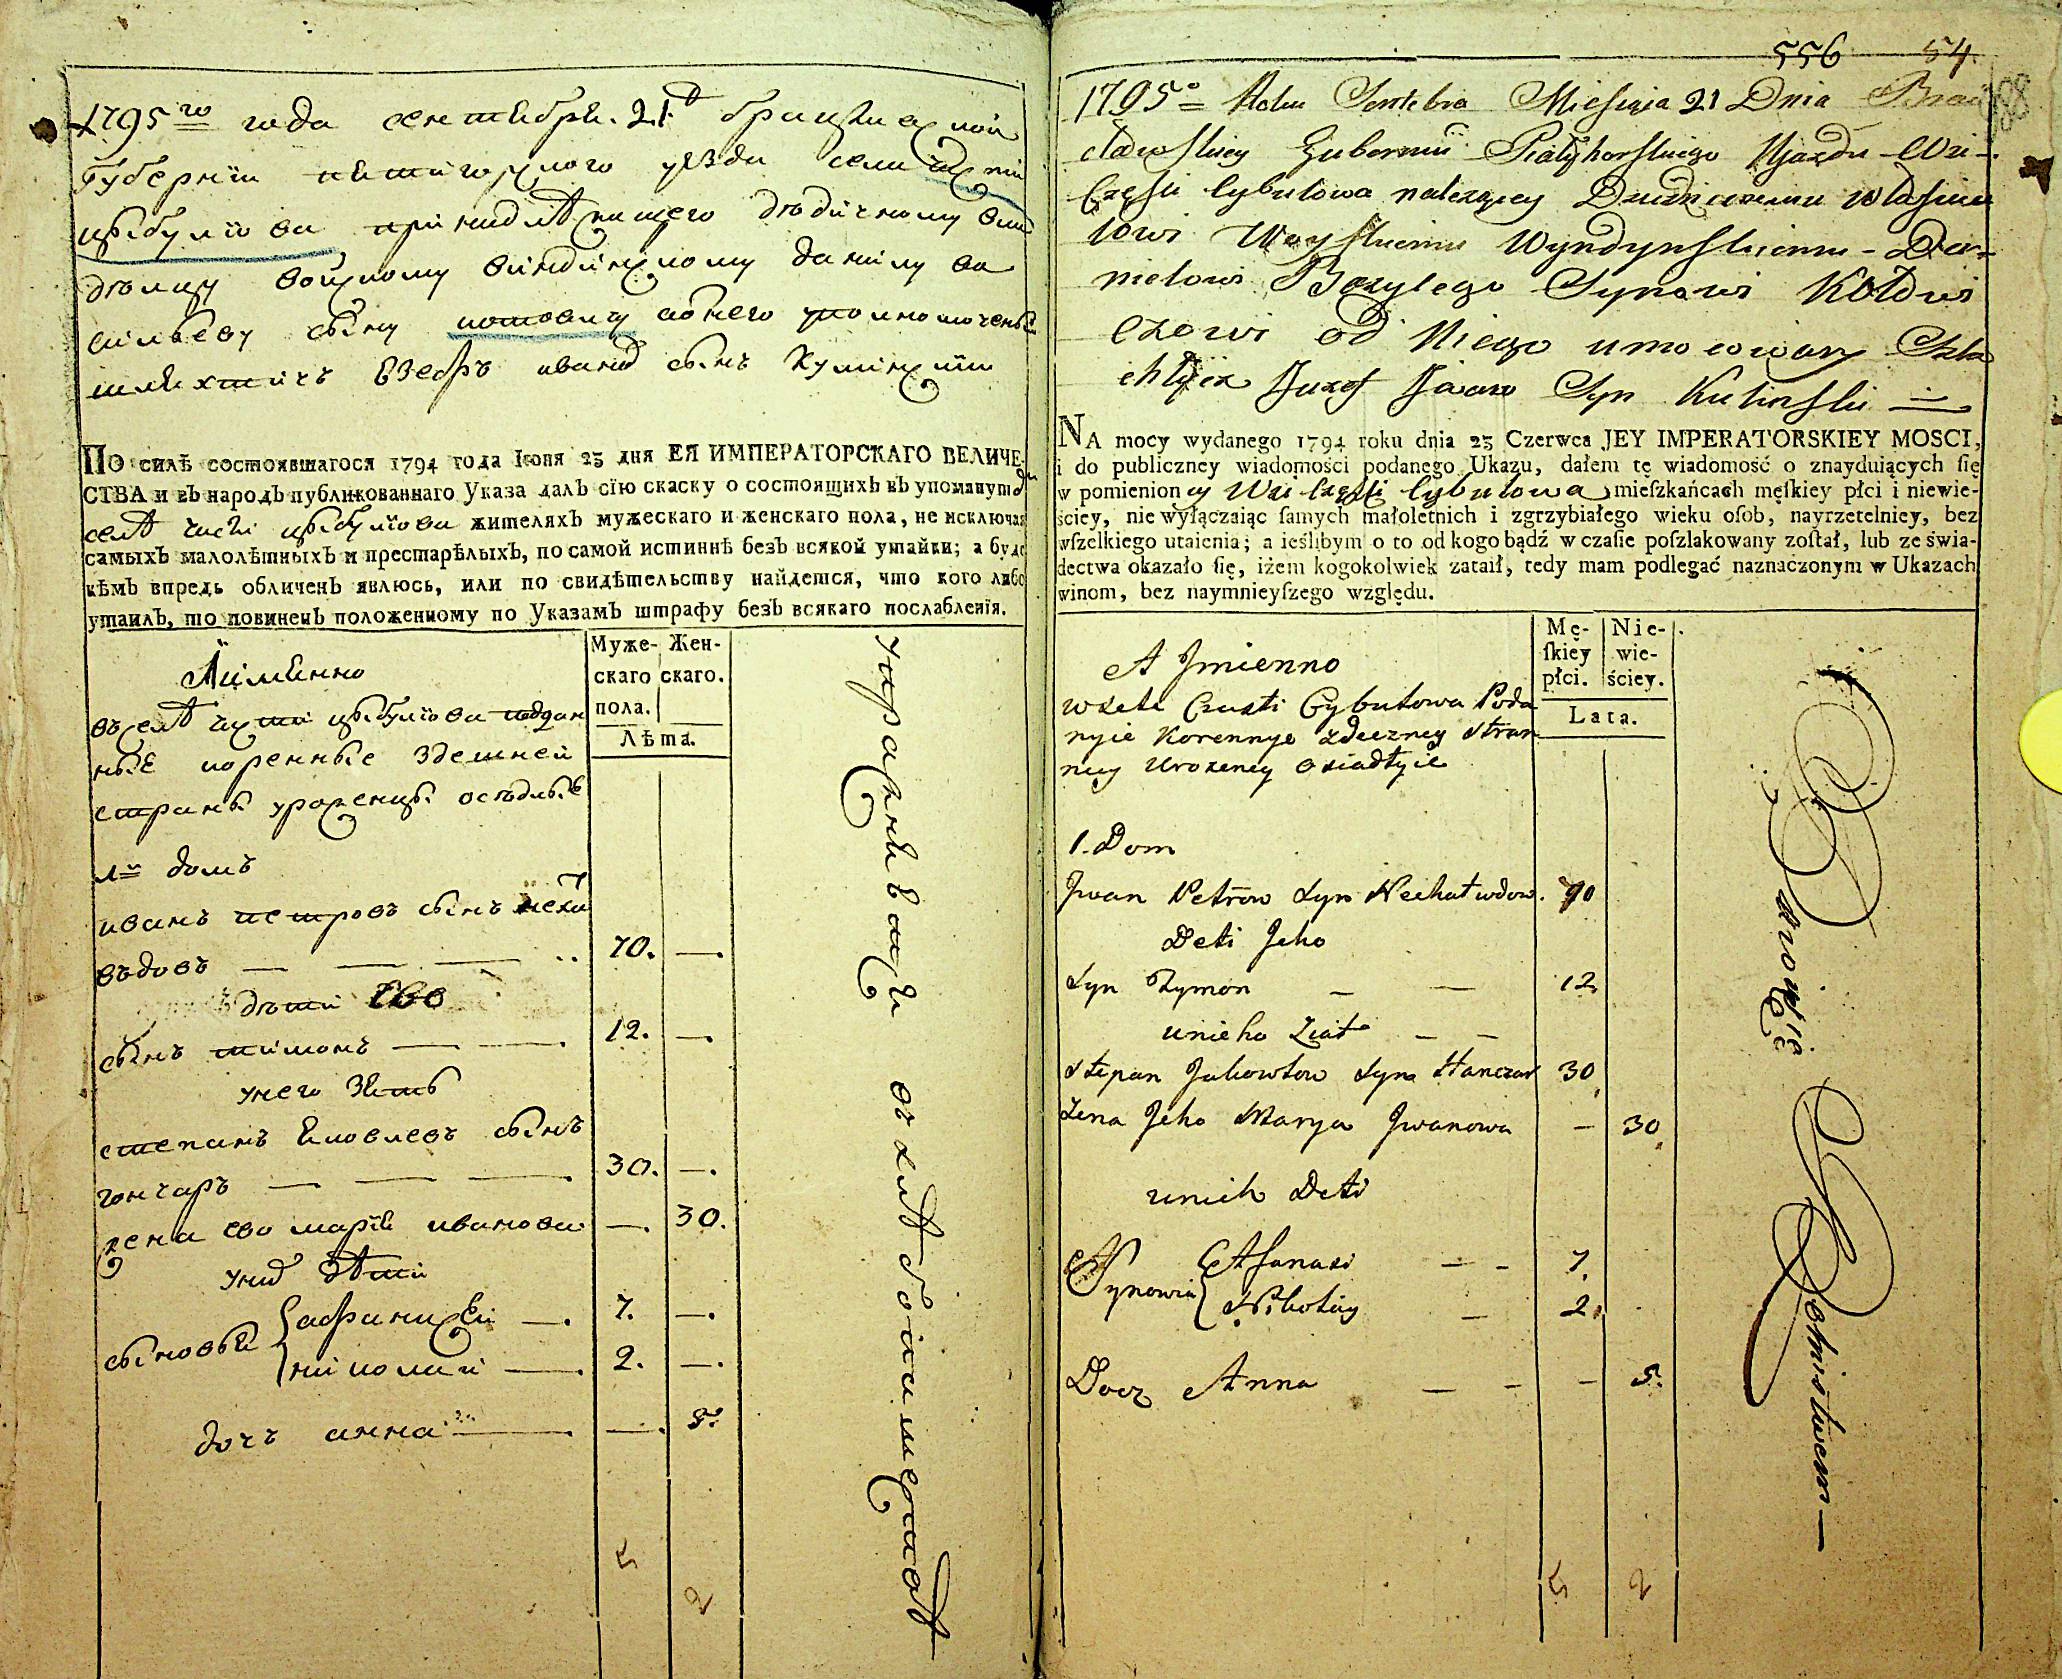 1795го года сентебря 21д брацлавской
губернии пятигорского уезда села части
цибулиова принадлежащего дедичному вла
делцу войскому виндинскому данилу ва
сильеву сыну котовичу от него уполномоченый
шляхтичъ юзефъ иванов сынъ кулинский
По силѣ состоявшагося 1794 года Іюня 23 дня ЕЯ ИМПЕРАТОРСКАГО ВЕЛИЧЕ-
СТВА и въ народъ публикованнаго Указа далъ сію скаску о состоящихъ въ упомянутом
селѣ части цибулиова жителяхъ мужескаго и женскаго пола, не исключая
самыхъ малолѣтныхъ и престарѣлыхъ, по самой истиннѣ безъ всякой утайки; а буде
кѣмъ впредь обличенъ явлюсь, или по свидѣтельству найдется, что кого либо
утаилъ, то повиненъ положенному по Указамъ штрафу безъ всякаго послабленія.
Муже- Жен-
скаго скаго.
пола.
Лѣта.
А имянно
въ селѣ части цибулиова поддан
ные коренные здешней
страны уроженцы оседлые
1й домъ
иванъ петровъ сынъ неха
въдовъ 70. —.
дети ево
сынъ тимонъ 12. —.
у него зять
степанъ яковлевъ сынъ
гончаръ 30. —.
жена ево мария иванова —. 30.
у них дети
сыновья афанасей 7. —.
николай 2. —.
дочъ анна —. 5.
5 2
556 54
1795o Roku Sentebra Miesiąca 21 Dnia Brac
ławskiey Gubernii Piatyhorskiego Ujazdu Wsi
Częsci Cybulowa nalezącey Dziedzicznemu włascicie
lowi Woyskiemu Wyndynskiemu Da-
nielowi Bazylego Synowi Kotowi
czowi od Niego umocowany Szla
chtycz Juzef Jwanow Syn Kulinski
NA mocy wydanego 1794 roku dnia 23 Czerwca JEY IMPERATORSKIEY MOSCI,
i do publiczney wiadomości podanego Ukazu, dałem tę wiadomość o znayduiących ſię
w pomienioney Wsi Częsci Cybulowa mieſzkańcach męſkiey płci i niewie-
ściey, nie wyłączaiąc ſamych małoletnich i zgrzybiałego wieku oſob, nayrzetelniey, bez
wſzelkiego utaienia; a ieślibym o to od kogo bądź w czaſie poſzlakowany zoſtał, lub ze świa-
dectwa okazało ſię, iżem kogokolwiek zataił, tedy mam podlegać naznaczonym w Ukazach
winom, bez naymnieyſzego względu.
Mę- Nie-
ſkiey wie-
płci. ściey.
Lata.
A Jmienno
w Sele Czasti Cybulowa Podda
nyie Korennye zdeszney stron
ney Urozency osiadłyie
1. Dom
Jwan Petrow Syn Nechat wdow. 70
Deti Jeho
Syn Tymon — — 12
unieho Ziat — —
Stepan Jakowlow Syn Hanczar 30
Zena Jeho Marya Jwanowa — 30
unich Deti
Synowia Afanasi — — 7
Nikołay — 2
Docz Anna — — — 5
5 2